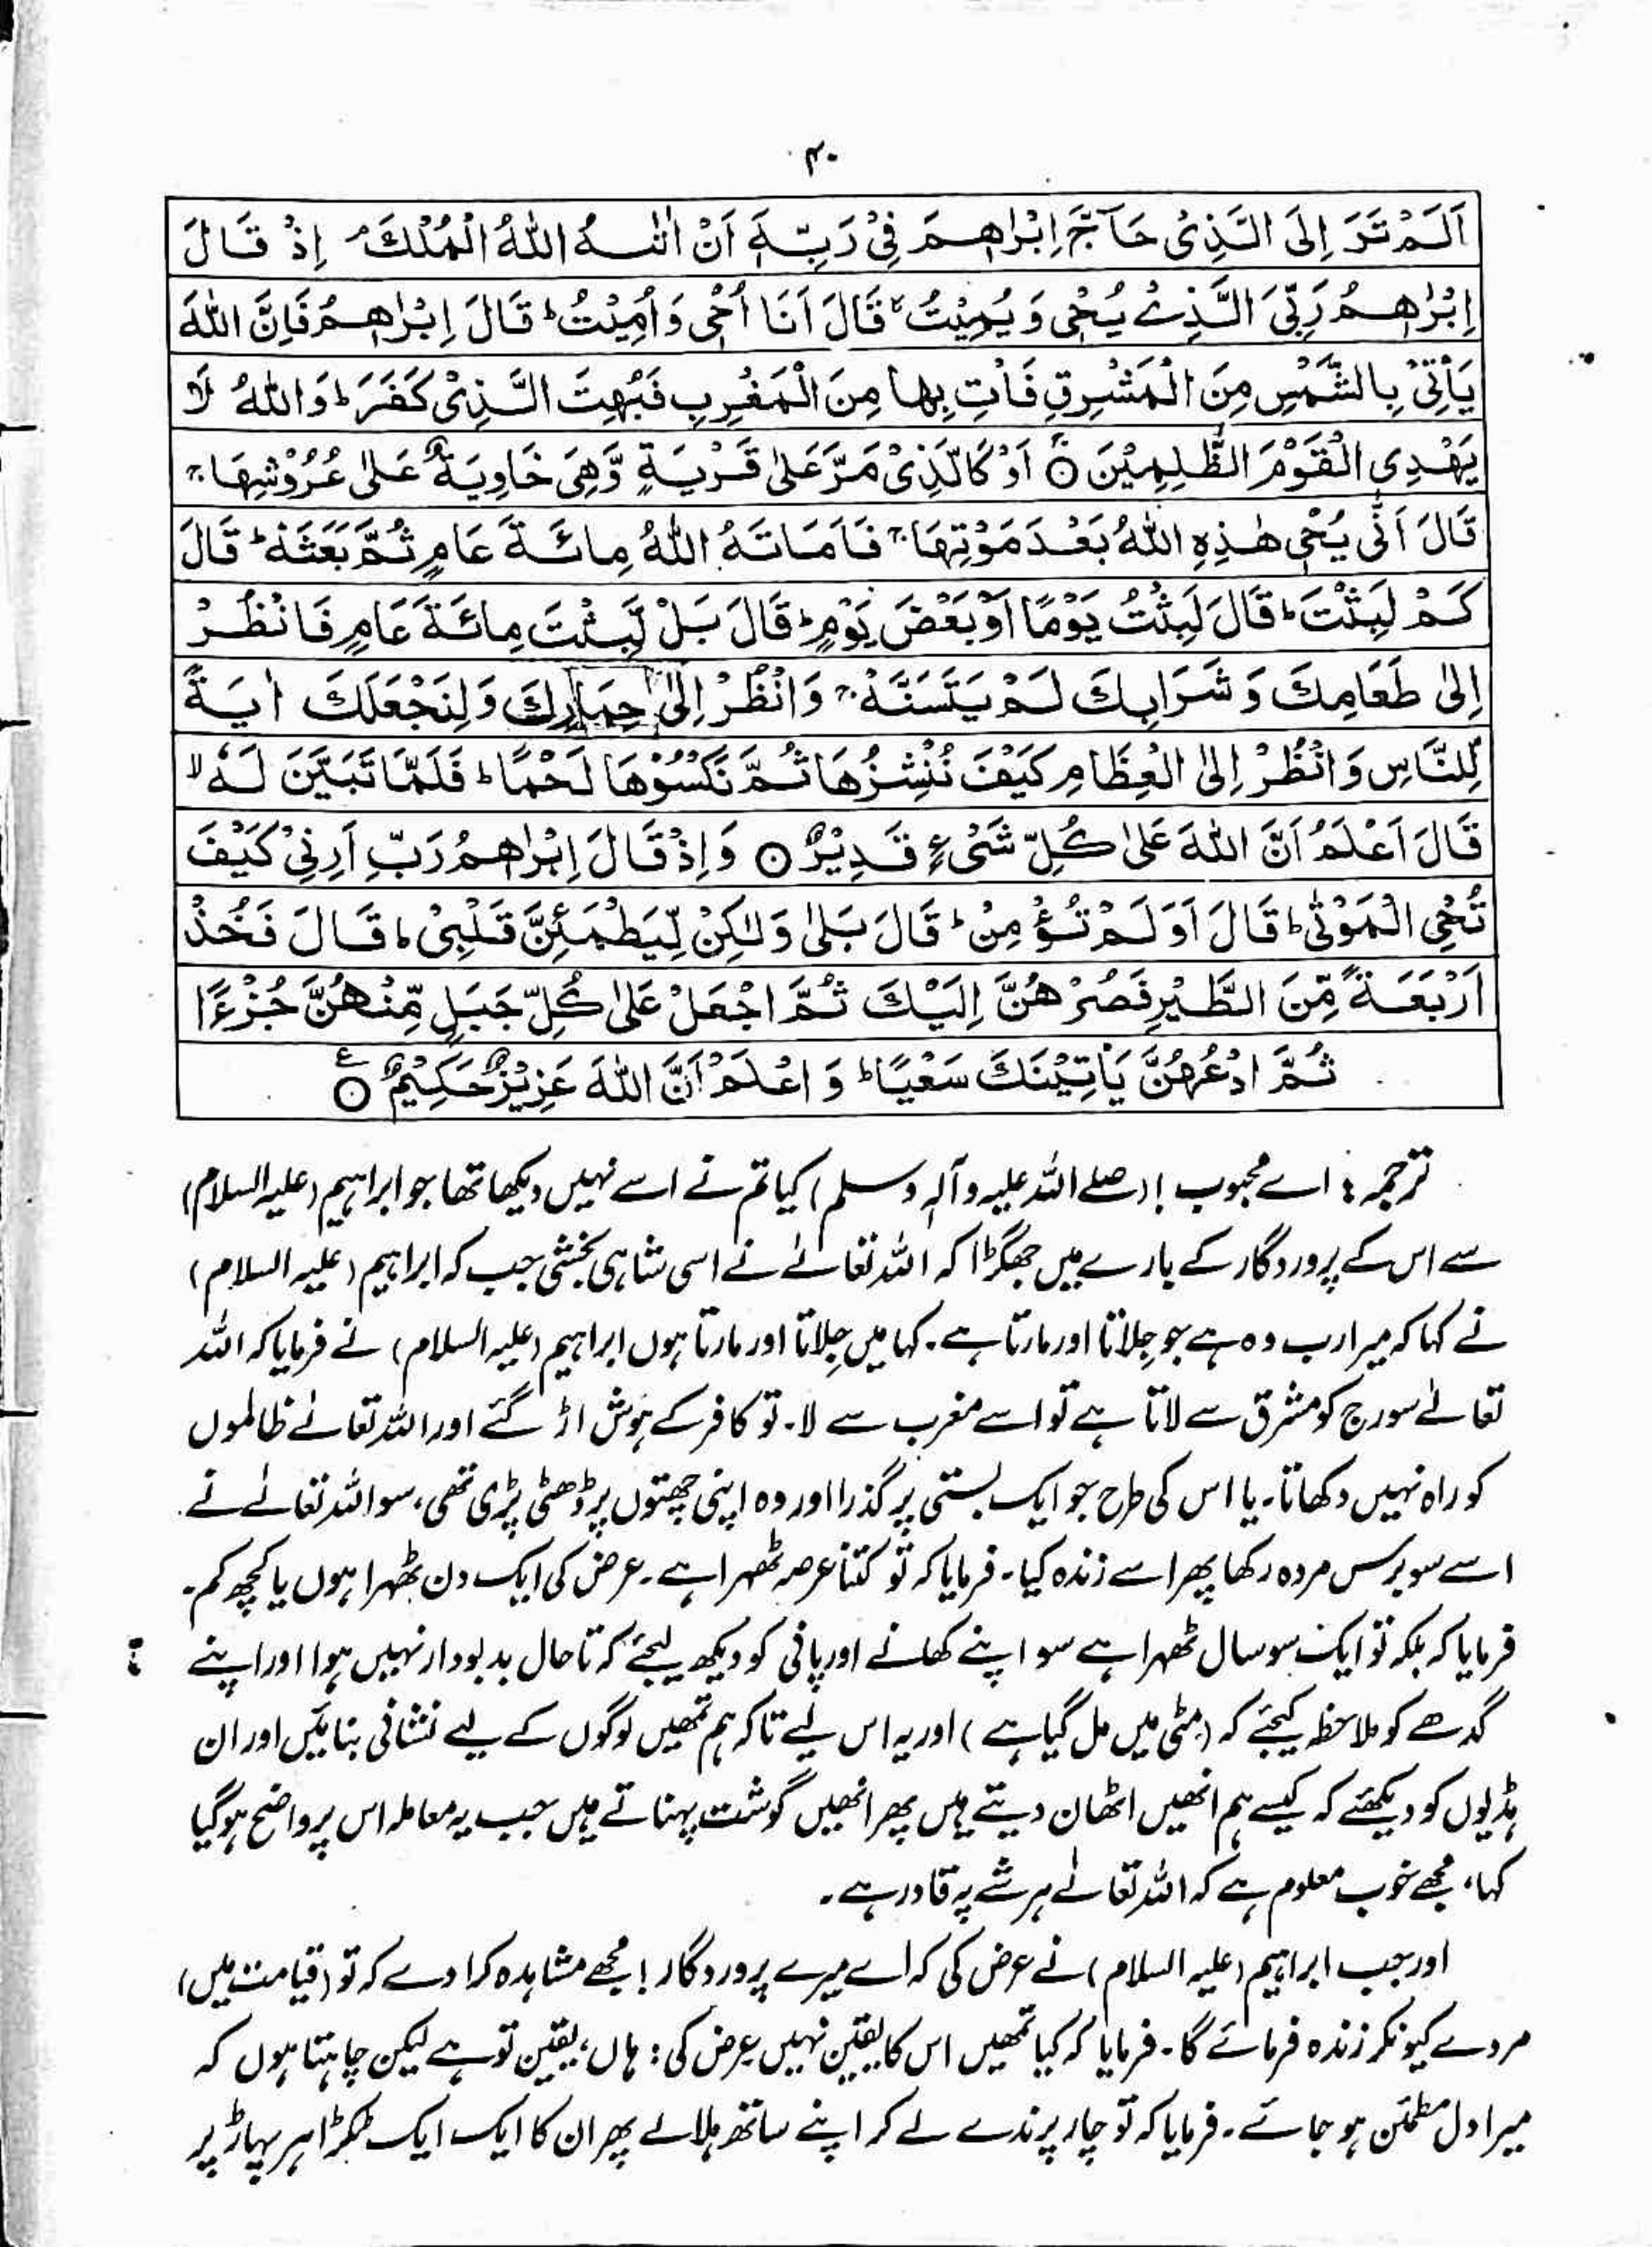 ۴۰
اَلَمْ تَرَ اِلَى الَّذِىْ حَآجَّ اِبْرٰهٖمَ فِىْ رَبِّهٖٓ اَنْ اٰتٰىهُ اللّٰهُ الْمُلْكَ ۘ اِذْ قَالَ
اِبْرٰهٖمُ رَبِّىَ الَّذِىْ يُحْىٖ وَيُمِيْتُ ۙ قَالَ اَنَا اُحْىٖ وَاُمِيْتُ ؕ قَالَ اِبْرٰهٖمُ فَاِنَّ اللّٰهَ
يَاْتِىْ بِالشَّمْسِ مِنَ الْمَشْرِقِ فَاْتِ بِهَا مِنَ الْمَغْرِبِ فَبُهِتَ الَّذِىْ كَفَرَ ؕ وَاللّٰهُ لَا
يَهْدِى الْقَوْمَ الظّٰلِمِيْنَ ۝ اَوْ كَالَّذِىْ مَرَّ عَلٰى قَرْيَةٍ وَّهِىَ خَاوِيَةٌ عَلٰى عُرُوْشِهَا ۚ
قَالَ اَنّٰى يُحْىٖ هٰذِهِ اللّٰهُ بَعْدَ مَوْتِهَا ۚ فَاَمَاتَهُ اللّٰهُ مِائَةَ عَامٍ ثُمَّ بَعَثَهٗ ؕ قَالَ
كَمْ لَبِثْتَ ؕ قَالَ لَبِثْتُ يَوْمًا اَوْ بَعْضَ يَوْمٍ ؕ قَالَ بَلْ لَّبِثْتَ مِائَةَ عَامٍ فَانْظُرْ
اِلٰى طَعَامِكَ وَشَرَابِكَ لَمْ يَتَسَنَّهْ ۚ وَانْظُرْ اِلٰى حِمَارِكَ وَلِنَجْعَلَكَ اٰيَةً
لِّلنَّاسِ وَانْظُرْ اِلَى الْعِظَامِ كَيْفَ نُنْشِزُهَا ثُمَّ نَكْسُوْهَا لَحْمًا ؕ فَلَمَّا تَبَيَّنَ لَهٗ ۙ
قَالَ اَعْلَمُ اَنَّ اللّٰهَ عَلٰى كُلِّ شَىْءٍ قَدِيْرٌ ۝ وَاِذْ قَالَ اِبْرٰهٖمُ رَبِّ اَرِنِىْ كَيْفَ
تُحْىِ الْمَوْتٰى ؕ قَالَ اَوَلَمْ تُؤْمِنْ ؕ قَالَ بَلٰى وَلٰكِنْ لِّيَطْمَئِنَّ قَلْبِىْ ؕ قَالَ فَخُذْ
اَرْبَعَةً مِّنَ الطَّيْرِ فَصُرْهُنَّ اِلَيْكَ ثُمَّ اجْعَلْ عَلٰى كُلِّ جَبَلٍ مِّنْهُنَّ جُزْءًا
ثُمَّ ادْعُهُنَّ يَاْتِيْنَكَ سَعْيًا ؕ وَاعْلَمْ اَنَّ اللّٰهَ عَزِيْزٌ حَكِيْمٌ ۝ ع
ترجمہ: اے محبوب! (صلے اللہ علیہ وآلہٖ وسلم) کیا تم نے اسے نہیں دیکھا تھا جو ابراہیم (علیہ السلام)
سے اس کے پروردگار کے بارے میں جھگڑا کہ اللہ تعالےٰ نے اسی شاہی بخشی جب کہ ابراہیم (علیہ السلام)
نے کہا کہ میرا رب وہ ہے جو جِلاتا اور مارتا ہے۔ کہا میں جِلاتا اور مارتا ہوں ابراہیم (علیہ السلام) نے فرمایا کہ اللہ
تعالےٰ سورج کو مشرق سے لاتا ہے تو اسے مغرب سے لا۔ تو کافر کے ہوش اڑ گئے اور اللہ تعالےٰ ظالموں
کو راہ نہیں دکھاتا۔ یا اس کی طرح جو ایک بستی پر گذرا اور وہ اپنی چھتوں پر ڈھئی پڑی تھی، سو اللہ تعالےٰ نے
اسے سو برس مردہ رکھا پھر اسے زندہ کیا۔ فرمایا کہ تو کتنا عرصہ ٹھہرا ہے۔ عرض کی ایک دن ٹھہرا ہوں یا کچھ کم۔
فرمایا کہ بلکہ تو ایک سو سال ٹھہرا ہے سو اپنے کھانے اور پانی کو دیکھ لیجئے کہ تاحال بدبودار نہیں ہوا اور اپنے
گدھے کو ملاحظہ کیجئے کہ (مٹی میں مل گیا ہے) اور یہ اس لیے تاکہ ہم تمھیں لوگوں کے لیے نشانی بنائیں اور ان
ہڈیوں کو دیکھئے کہ کیسے ہم انھیں اٹھان دیتے ہیں پھر انھیں گوشت پہناتے ہیں جب یہ معاملہ اس پر واضح ہوگیا
کہا، مجھے خوب معلوم ہے کہ اللہ تعالےٰ ہر شے پہ قادر ہے۔
اور جب ابراہیم (علیہ السلام) نے عرض کی کہ اے میرے پروردگار! مجھے مشاہدہ کرا دے کہ تو (قیامت میں)
مردے کیونکر زندہ فرمائے گا۔ فرمایا کہ کیا تمھیں اس کا یقین نہیں عرض کی: ہاں، یقین تو ہے لیکن چاہتا ہوں کہ
میرا دل مطمئن ہو جائے۔ فرمایا کہ تو چار پرندے لے کر اپنے ساتھ ہلالے پھر ان کا ایک ایک ٹکڑا ہر پہاڑ پر